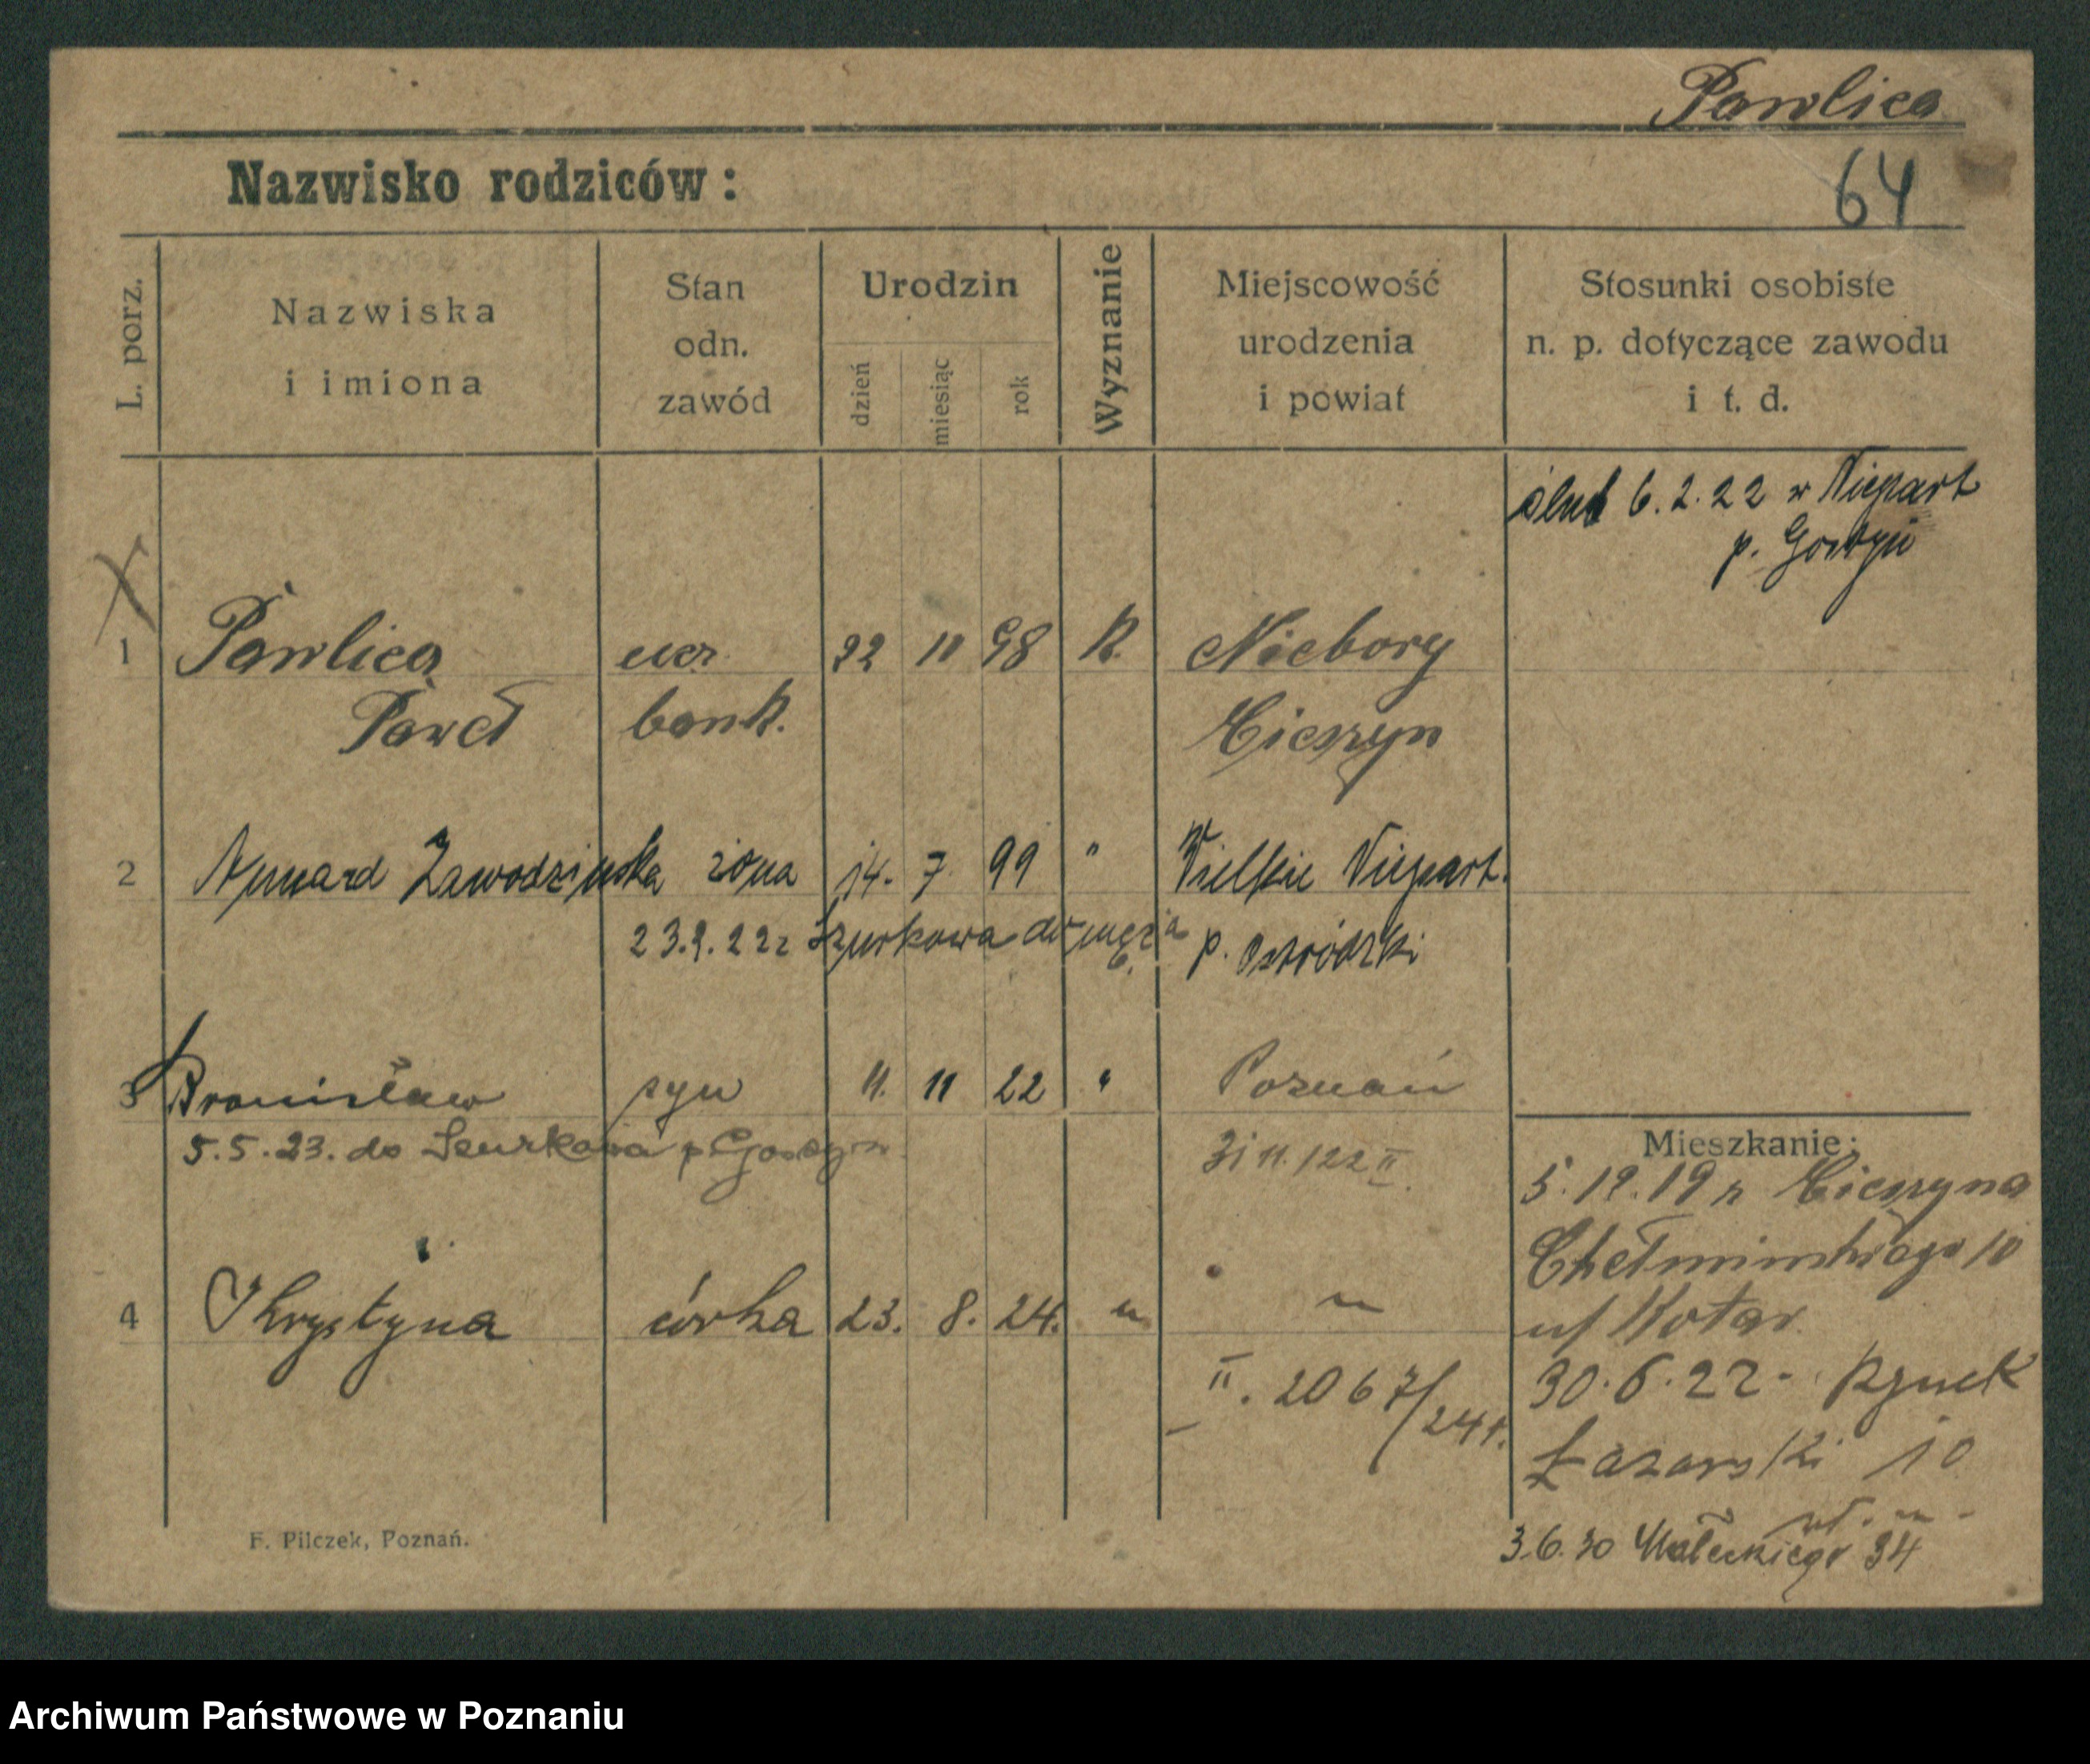 Pawlica
Nazwisko rodziców:
64
L. porz.
Nazwiska
i imiona
Stan
odn.
zawód
Urodzin
dzień
miesiąc
rok
Wyznanie
Miejscowość
urodzenia
i powiat
Stosunki osobiste
n. p. dotyczące zawodu
i t. d.
ślub 6.2.22 w Niepart
p. Gostyń
1 Pawlica 22 11 98 K. Niebory
Paweł bank. Cieszyn
2 Zawodzinska żona 14. 7 99 " Wielkie Niepart.
23.9.22 z Szurkowa do męża p.
3 Bronisław syn 11. 11 22 " Poznań
5.5.23. do Szurkowa p Gostyn
4 Khrystyna córka 23. 8. 24. " "
II. 2067/24r.
Mieszkanie:
5.12.19 z Cieszyna
Chełmińskiego 10
u/ Kotar
30.6.22. Rynek
Łazarski 10
3.6.30 Małeckiego 34
F. Pilczek, Poznań.
Archiwum Państwowe w Poznaniu